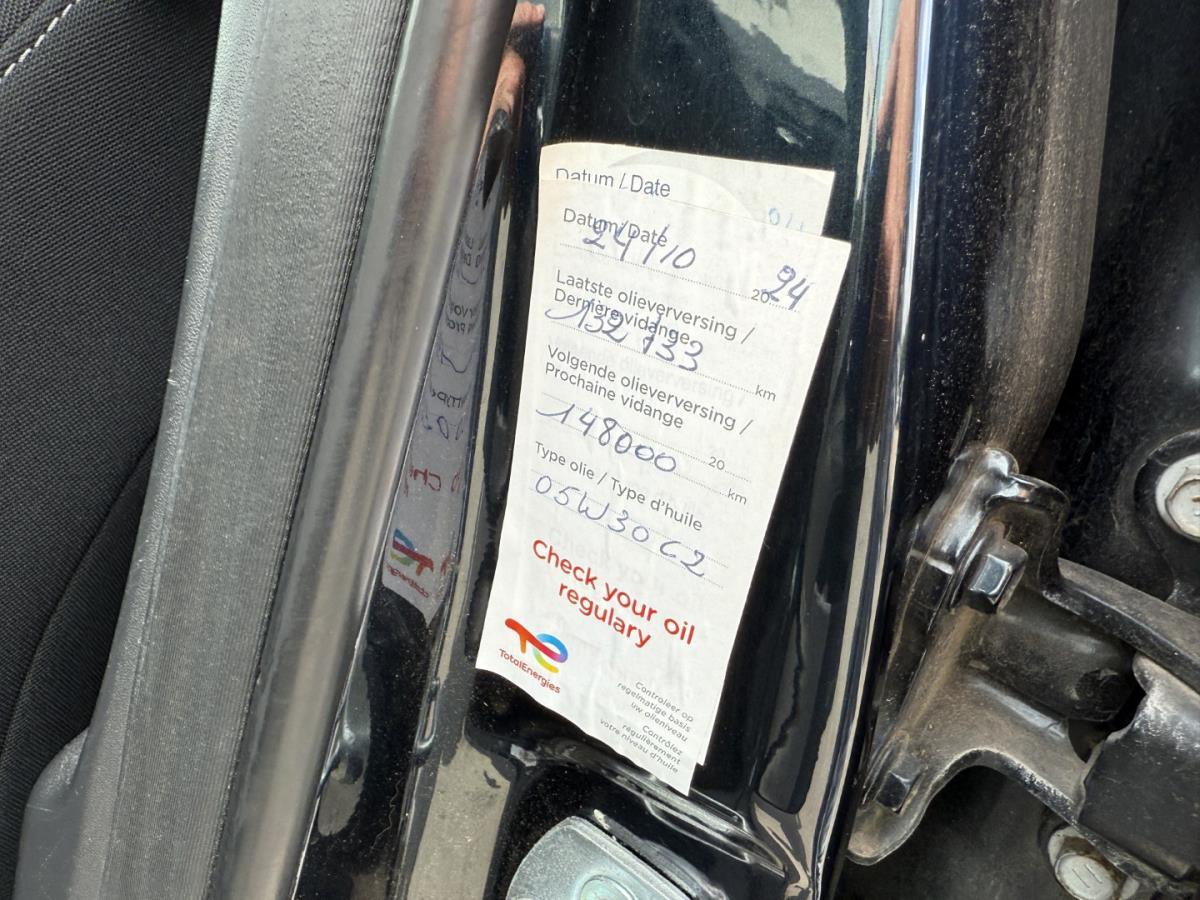 Datum / Date
Datum/Date
24/10 2024
Laatste olieverversing /
Dernière vidange
132 133 km
Volgende olieverversing /
Prochaine vidange
20
148000 km
Type olie / Type d'huile
05W30 C2
Check your oil
regulary
TotalEnergies
Controleer op
regelmatige basis
uw olieniveau
Contrôlez
régulièrement
votre niveau d'huile